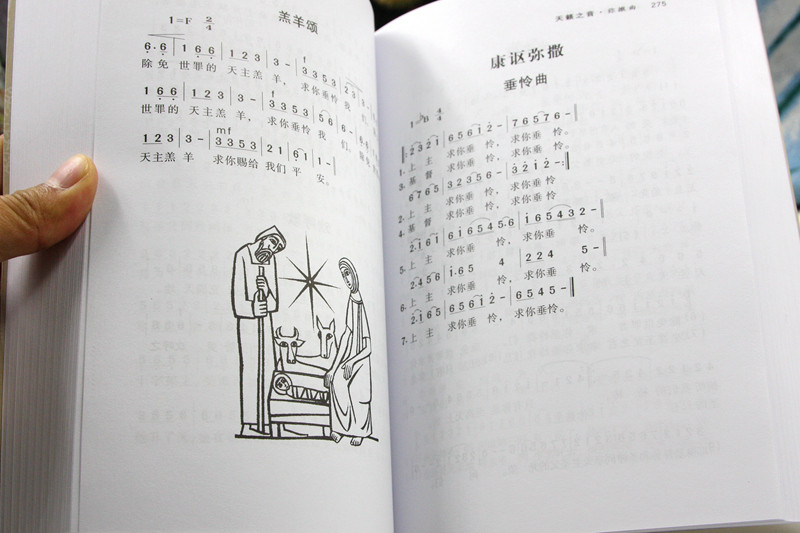 羔羊颂
1=F 2/4
f
6·6 | 1 6 6 | 1 2 3 | 3 - | 3 3 5 3 | 2 3
除免 世罪的 天主羔 羊, 求你垂怜 我
f
1 6 6 | 1 2 3 | 3 - | 3 3 5 3 | 5 6 | 6 -
世罪的 天主羔 羊, 求你垂怜 我 们,
mf
1 2 3 | 3 - | 3 3 5 3 | 2 1 | 6 1 | 1 - ‖
天主羔羊 求你赐给 我们 平 安。
天籁之音· 275
康讴弥撒
垂怜曲
1=B 4/4
2 3 2 1 | 6 5 6 1 2 - | 7 6 5 7 6 - |
1. 上 主 求你垂 怜, 求你垂 怜。
3. 基 督 求你垂 怜, 求你垂 怜。
6 7 6 5 | 3 2 3 5 6 - | 3 2 1 2 - :‖
2. 上 主 求你垂 怜, 求你垂 怜
4. 基 督 求你垂 怜, 求你垂 怜。
2·1 6 1 | 6 1 6 5 4 5·6 | 1 6 5 4 3 2 - |
5. 上 主 求你垂 怜, 求你垂 怜。
2·4 5 6 | 1·6 5 4 | 2 2 4 5 - |
6. 上 主 求你垂 怜, 求你垂 怜。
2·1 6 5 | 6 5 6 1 2 - | 6 5 4 5 - ‖
7. 上 主 求你垂 怜, 求你垂怜。